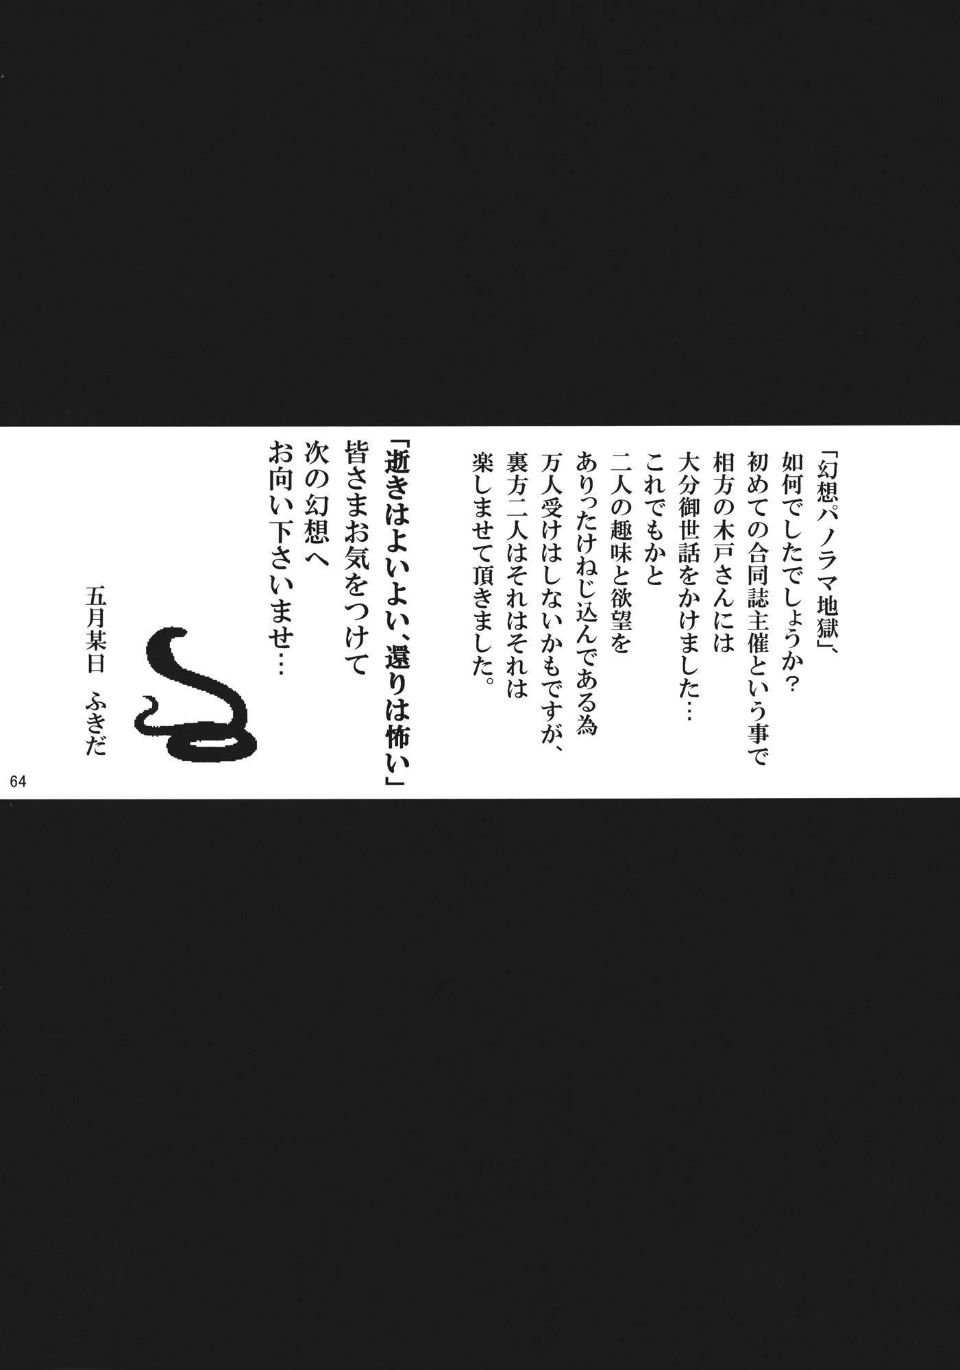 「幻想パノラマ地獄」、
如何でしたでしょうか？
初めての合同誌主催という事で
相方の木戸さんには
大分御世話をかけました…
これでもかと
二人の趣味と欲望を
ありったけねじ込んである為
万人受けはしないかもですが、
裏方二人はそれはそれは
楽しませて頂きました。
「逝きはよいよい、還りは怖い」
皆さまお気をつけて
次の幻想へ
お向い下さいませ…
五月某日　ふきだ
64